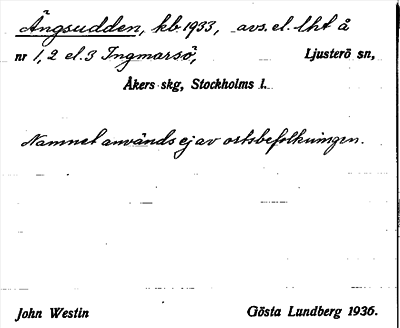 Ängsudden, kb. 1933, avs. el. lht å
nr 1, 2 el. 3 Ingmarsö, Ljusterö sn,
Åkers skg, Stockholms l.
Namnet används ej av ortsbefolkningen.
John Westin Gösta Lundberg 1936.